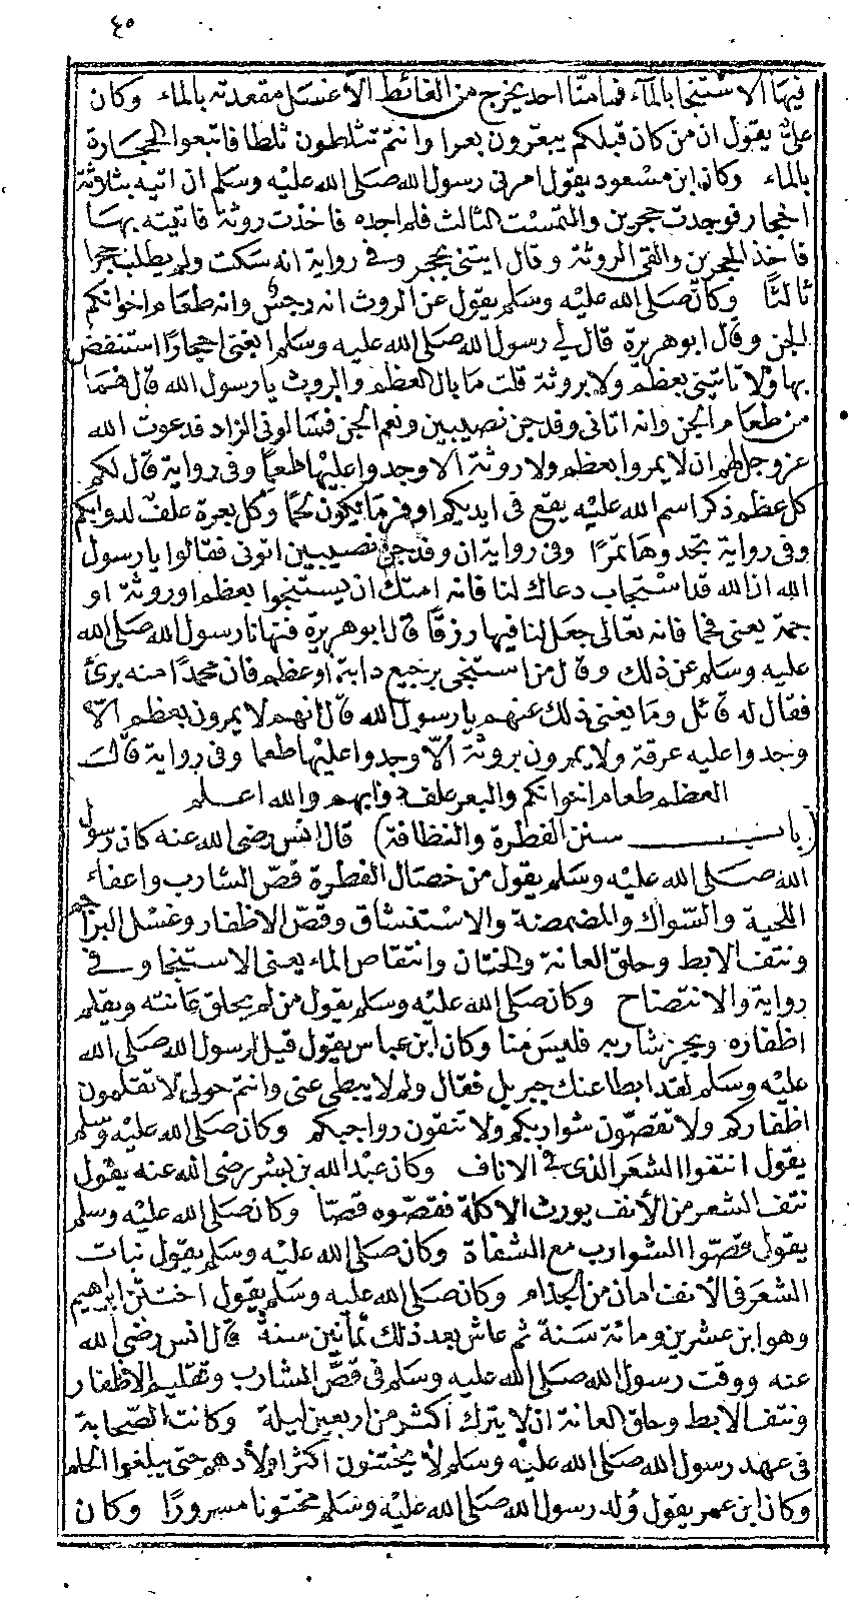 ٤٥
فيها الاستنجا بالمآء فما منا احد يخرج من الغائط الا غسل مقعدته بالماء وكان
على يقول ان من كان قبلكم يبعرون بعرا وانتم تثلطون ثلطا فاتبعوا الحجارة
بالماء وكان ابن مسعود يقول امرنى رسول الله صلى الله عليه وسلم ان اتيه بثلاثة
احجار فوجدت حجرين والتمست الثالث فلم اجده فاخذت روثة فاتيته بها
فاخذ الحجرين والقى الروثة وقال ايتنى بحجر وفى رواية انه سكت ولم يطلب حجرا
ثالثا وكان صلى الله عليه وسلم يقول عن الروث انه رجس وانه طعام اخوانكم
الجن وقال ابو هريرة قال لي رسول الله صلى الله عليه وسلم ابغنى احجارا استنفض
بها ولا تاتينى بعظم ولا بروثة قلت ما بال العظم والروث يا رسول الله قال هما
من طعام الجن وانه اتانى وفد جن نصيبين ونعم الجن فسالونى الزاد فدعوت الله
عز وجل لهم ان لا يمروا بعظم ولا روثة الا وجدوا عليها طعما وفى رواية قال لكم
كل عظم ذكر اسم الله عليه يقع فى ايديكم اوفر ما يكون لحما وكل بعرة علف لدوابكم
وفى رواية تجدوها تمرا وفى رواية ان وفد جن نصيبين اتونى فقالوا يا رسول
الله ان الله قد استجاب دعاك لنا فانه امتك ان يستنجوا بعظم او روثة او
حممة يعنى فحما فانه تعالى جعل لنا فيها رزقا قال ابو هريرة فنهانا رسول الله صلى الله
عليه وسلم عن ذلك وقال من استنجى برجيع دابة او عظم فان محمدا منه برئ
فقال له قائل وما يغنى ذلك عنهم يا رسول الله قال انهم لا يمرون بعظم الا
وجدوا عليه عرقة ولا يمرون بروثة الا وجدوا عليها طعما وفى رواية قالت
العظم طعام اخوانكم والبعر علف دوابهم والله اعلم
(باب سنن الفطرة والنظافة) قال انس رضى الله عنه كان رسول
الله صلى الله عليه وسلم يقول من خصال الفطرة قص الشارب واعفاء
اللحية والسواك والمضمضة والاستنشاق وقص الاظفار وغسل البراجم
ونتف الابط وحلق العانة والختان وانتقاص الماء يعنى الاستنجا وفي
رواية والانتضاح وكان صلى الله عليه وسلم يقول من لم يحلق عانته ويقلم
اظفاره ويجز شاربه فليس منا وكان ابن عباس يقول قيل لرسول الله صلى الله
عليه وسلم لقد ابطا عنك جبريل فقال ولم لا يبطى عنى وانتم حولى لا تقلمون
اظفاركم ولا تقصون شواربكم ولا تنقون رواجبكم وكان صلى الله عليه وسلم
يقول انتفوا الشعر الذى في الاناف وكان عبد الله بن بشر رضى الله عنه يقول
نتف الشعر من الأنف يورث الاكلة فقصوه قصا وكان صلى الله عليه وسلم
يقول قصوا الشوارب مع الشفاة وكان صلى الله عليه وسلم يقول نبات
الشعر فى الانف امان من الجذام وكان صلى الله عليه وسلم يقول اختتن ابراهيم
وهو ابن عشرين ومائة سنة ثم عاش بعد ذلك ثمانين سنة قال انس رضى الله
عنه ووقت رسول الله صلى الله عليه وسلم فى قص الشارب وتقليم الاظفار
ونتف الابط وحلق العانة ان لا يترك اكثر من اربعين ليلة وكانت الصحابة
فى عهد رسول الله صلى الله عليه وسلم لا يختنون اكثر اولادهم حتى يبلغوا الحلم
وكان ابن عمر يقول ولد رسول الله صلى الله عليه وسلم مختونا مسرورا وكان